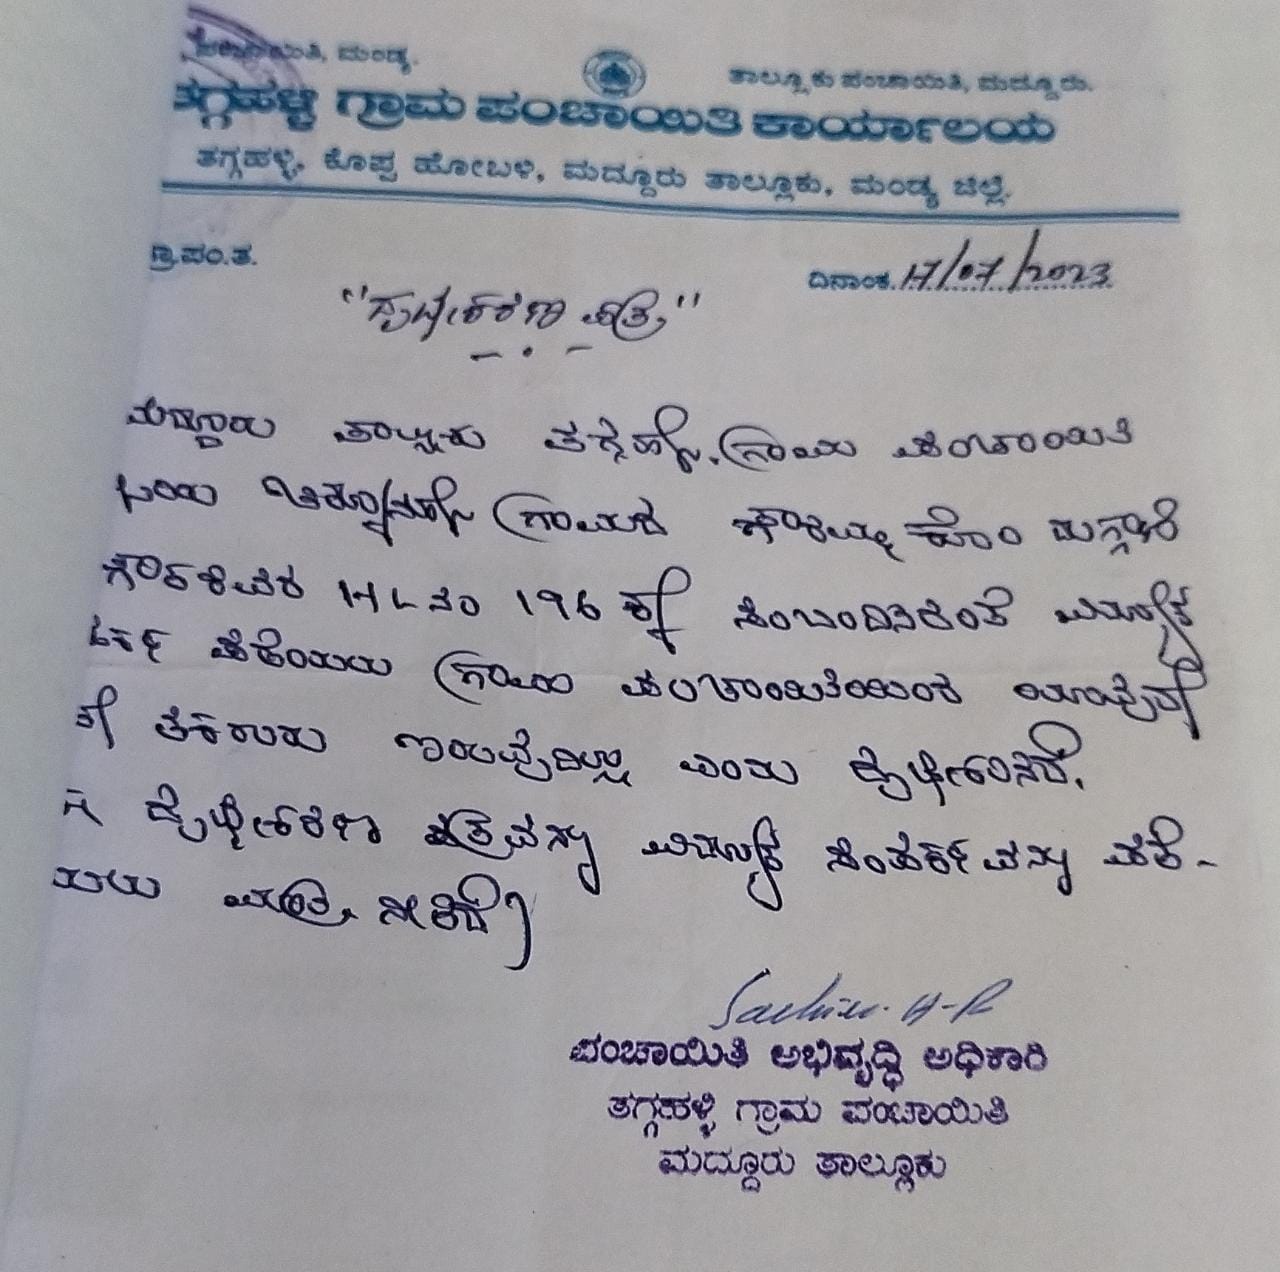 ಪಂಚಾಯಿತಿ, ಮಂಡ್ಯ.
ತಾಲ್ಲೂಕು ಪಂಚಾಯಿತಿ, ಮದ್ದೂರು.
ತಗ್ಗಹಳ್ಳಿ ಗ್ರಾಮ ಪಂಚಾಯಿತಿ ಕಾರ್ಯಾಲಯ
ತಗ್ಗಹಳ್ಳಿ, ಕೊಪ್ಪ ಹೋಬಳಿ, ಮದ್ದೂರು ತಾಲ್ಲೂಕು, ಮಂಡ್ಯ ಜಿಲ್ಲೆ.
ಗ್ರಾ.ಪಂ.ತ.
ದಿನಾಂಕ. 17/07/2023
ಪತ್ರ"
ಮದ್ದೂರು ತಾಲ್ಲೂಕು ತಗ್ಗಹಳ್ಳಿ ಗ್ರಾಮ ಪಂಚಾಯಿತಿ
ಗ್ರಾಮದ ಕೋಂ
ನಂ 196 ಕ್ಕೆ ಸಂಬಂದಿಸಿದಂತೆ ವಿದ್ಯುತ್
ಪಡೆಯಲು ಗ್ರಾಮ ಪಂಚಾಯಿತಿಯಿಂದ ಯಾವುದೇ
ತಕರಾರು ಇರುವುದಿಲ್ಲಾ ಎಂದು ದೃಢೀಕರಿಸಿದೆ.
ಈ ದೃಢೀಕರಣ ಪತ್ರವನ್ನು ವಿದ್ಯುತ್ ಸಂಪರ್ಕವನ್ನು ಪಡೆ-
ಯಲು ಮಾತ್ರ ನೀಡಿದೆ
Sachin. H-R
ಪಂಚಾಯಿತಿ ಅಭಿವೃದ್ಧಿ ಅಧಿಕಾರಿ
ತಗ್ಗಹಳ್ಳಿ ಗ್ರಾಮ ಪಂಚಾಯಿತಿ
ಮದ್ದೂರು ತಾಲ್ಲೂಕು